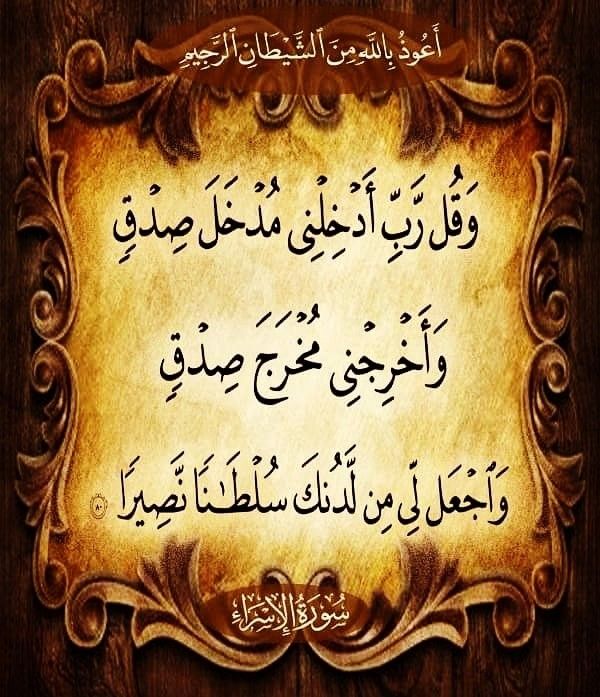 أَعُوذُ بِاللَّهِ مِنَ ٱلشَّيْطَانِ ٱلرَّجِيمِ
وَقُل رَّبِّ أَدْخِلْنِى مُدْخَلَ صِدْقٍ
وَأَخْرِجْنِى مُخْرَجَ صِدْقٍ
وَٱجْعَل لِّى مِن لَّدُنكَ سُلْطَٰنًا نَّصِيرًا ٨٠
سُورَةُ الإِسْرَاءِ